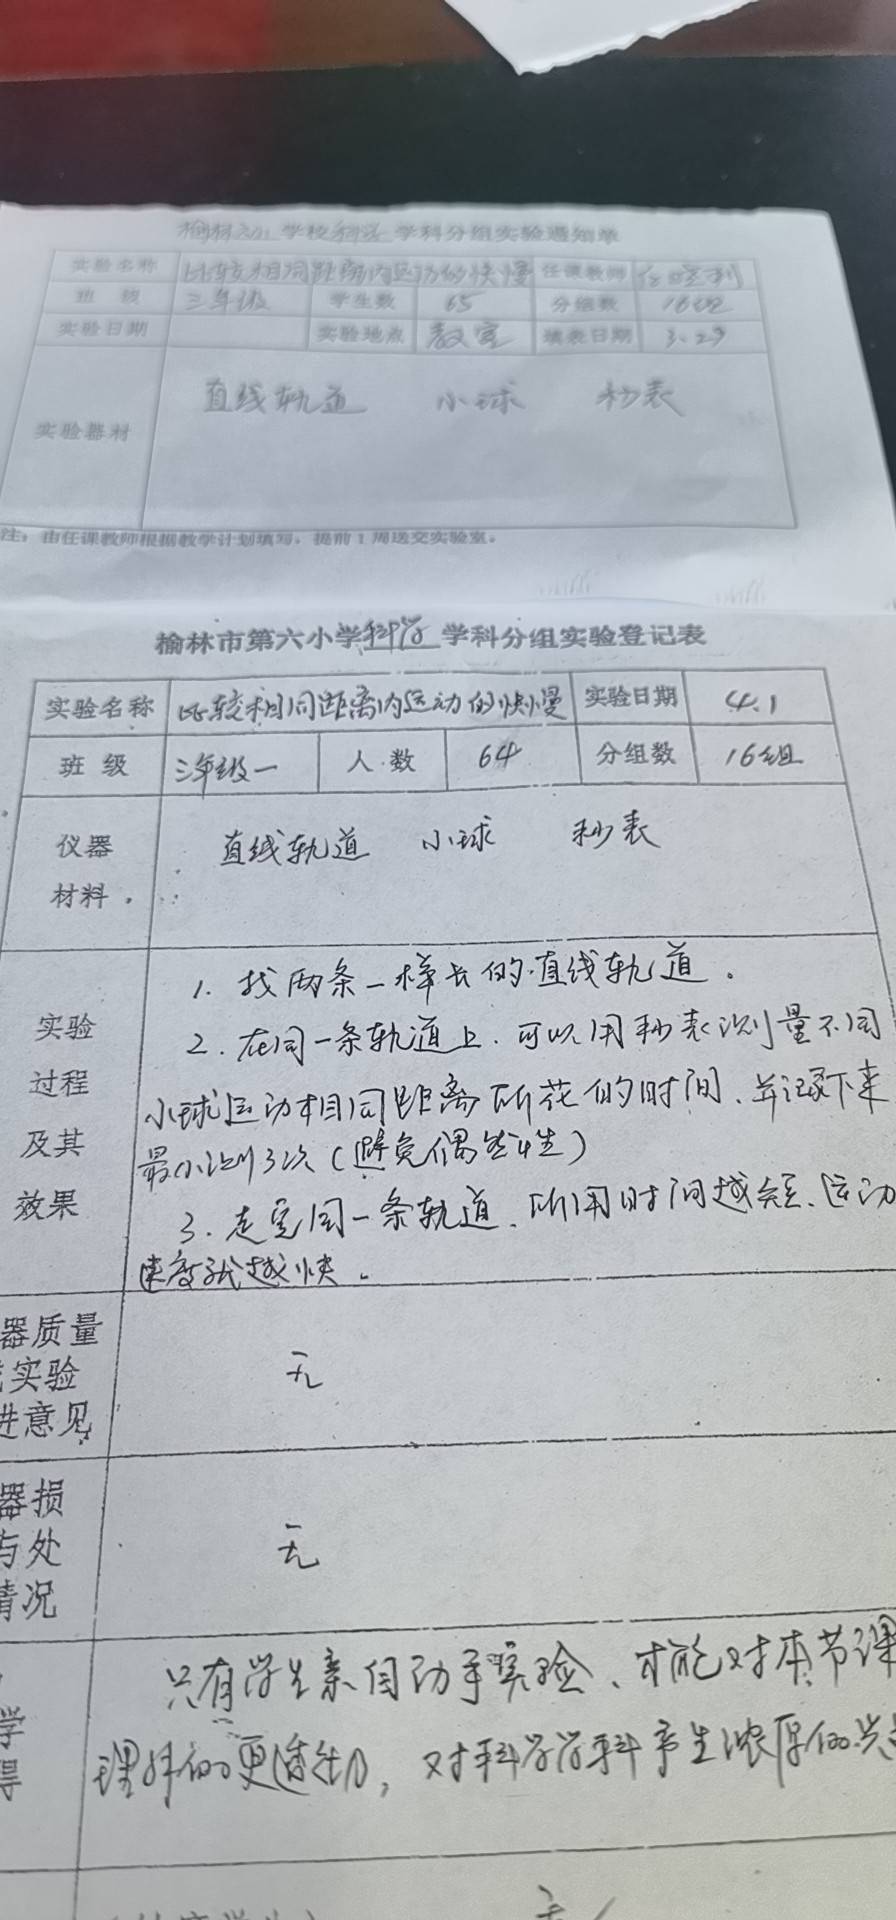 榆林六小学校科学学科分组实验通知单
实验名称 比较相同距离内运动的快慢 任课教师
班级 三年级 学生数 65 分组数 16组
实验日期 实验地点 教室 填表日期 3.29
实验器材 直线轨道 小球 秒表
注：由任课教师根据教学计划填写，提前1周送交实验室。
榆林市第六小学科学学科分组实验登记表
实验名称 比较相同距离内运动的快慢 实验日期 4.1
班级 三年级一 人数 64 分组数 16组
仪器
材料 直线轨道 小球 秒表
实验
过程
及其
效果
1. 找两条一样长的直线轨道.
2. 在同一条轨道上.可以用秒表测量不同
小球运动相同距离所花的时间、并记录下来
最小测3次(避免偶然性)
3. 走完同一条轨道.所用时间越短、运动
速度就越快.
器质量
实验
进意见
无
器损
与处
情况
无
学
得
只有学生亲自动手实验、才能对本节课
理解的更透彻, 对科学学科产生浓厚的兴